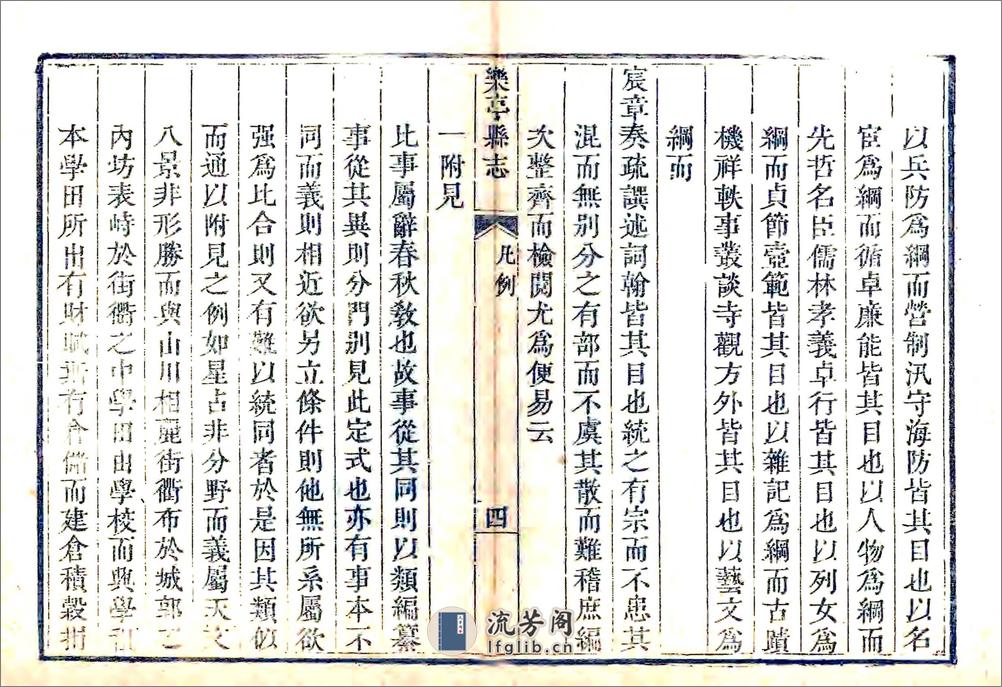 以兵防為綱而營制汛守海防皆其目也以名
宦為綱而循卓廉能皆其目也以人物為綱而
先哲名臣儒林孝義卓行皆其目也以列女為
綱而貞節壼範皆其目也以雜記為綱而古蹟
機祥軼事叢談寺觀方外皆其目也以藝文為
綱而
宸章奏疏譔述詞翰皆其目也統之有宗而不患其
混而無別分之有部而不虞其散而難稽庶編
次整齊而檢閱尤為便易云
樂亭縣志
凡例
四
一附見
比事屬辭春秋敎也故事從其同則以類編纂
事從其異則分門別見此定式也亦有事本不
同而義則相近欲另立條件則他無所系屬欲
强為比合則又有難以統同者於是因其類似
而通以附見之例如星占非分野而義屬天文
八景非形勝而與山川相麗街衢布於城郭之
內坊表峙於街衢之中學田由學校而典學
本學田所出有財賦斯有倉儲而建倉積穀捐
流芳阁
lfglib.cn